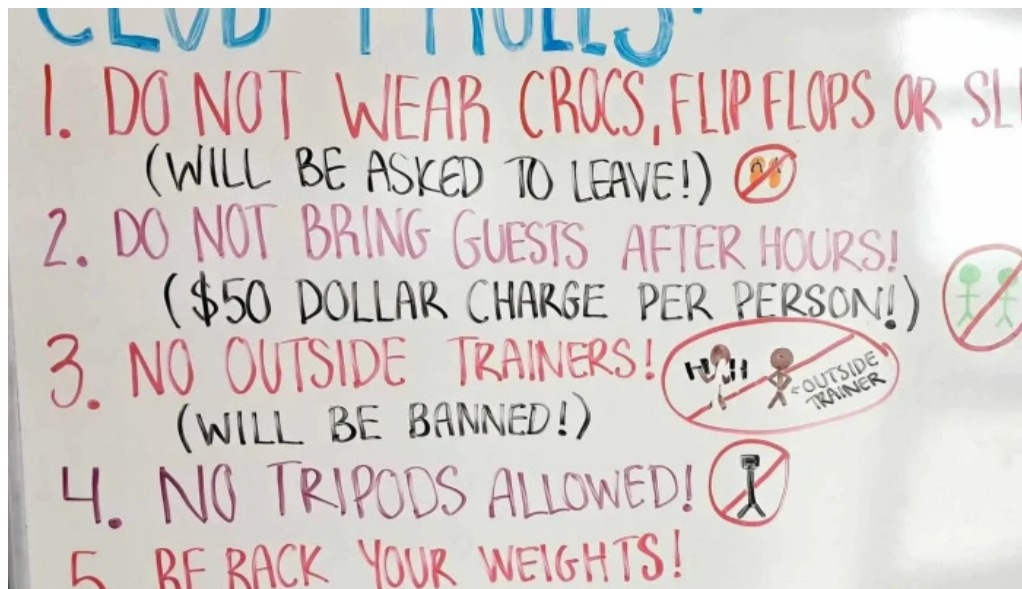 CLUB RULES!
1. DO NOT WEAR CROCS, FLIP FLOPS OR
(WILL BE ASKED TO LEAVE!)
2. DO NOT BRING GUESTS AFTER HOURS!
($50 DOLLAR CHARGE PER PERSON!)
3. NO OUTSIDE TRAINERS!
←OUTSIDE
TRAINER
(WILL BE BANNED!)
4. NO TRIPODS ALLOWED!
5. RE RACK YOUR WEIGHTS!